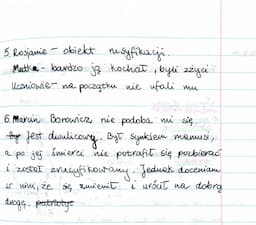 5. Rosjanie - obiekt rusyfikacji.
Matka - bardzo ją kochał, byli zżyci
Uczniowie - na początku nie ufali mu
6. Marcin Borowicz nie podoba mi się.
Był Jest dwulicowy. Był synkiem mamusi,
a po jej śmierci nie potrafił się pozbierać
i został zrusyfikowany. Jednak doceniam
w nim, że się zmienił i wrócił na dobrą
drogę. patriotyc